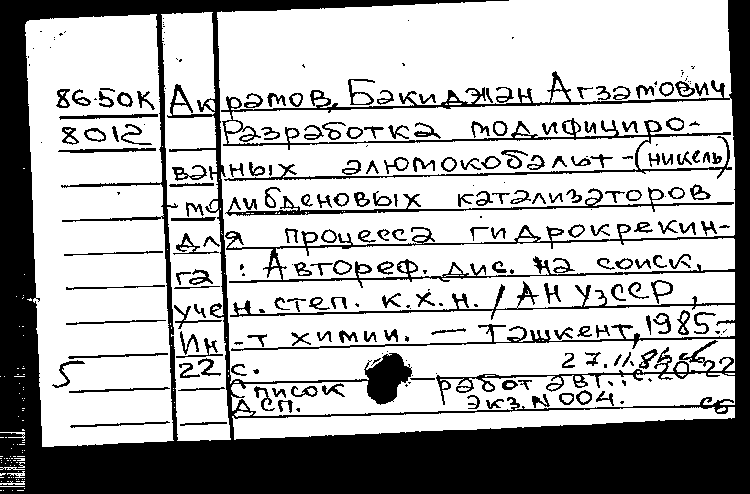 86-50К Акрамов, Бакиджан Агзамович.
8012 Разработка модифициро-
ванных алюмокобальт-(никель)
-молибденовых катализаторов
для процесса гидрокрекин-
га : Автореф. дис. на соиск.
учен. степ. к.х.н. / АН УзССР,
Ин-т химии. — Ташкент, 1985.-
5 22 с. 27.11.85
Список работ авт.: с. 20-22
Дсп. Экз. N 004. сб